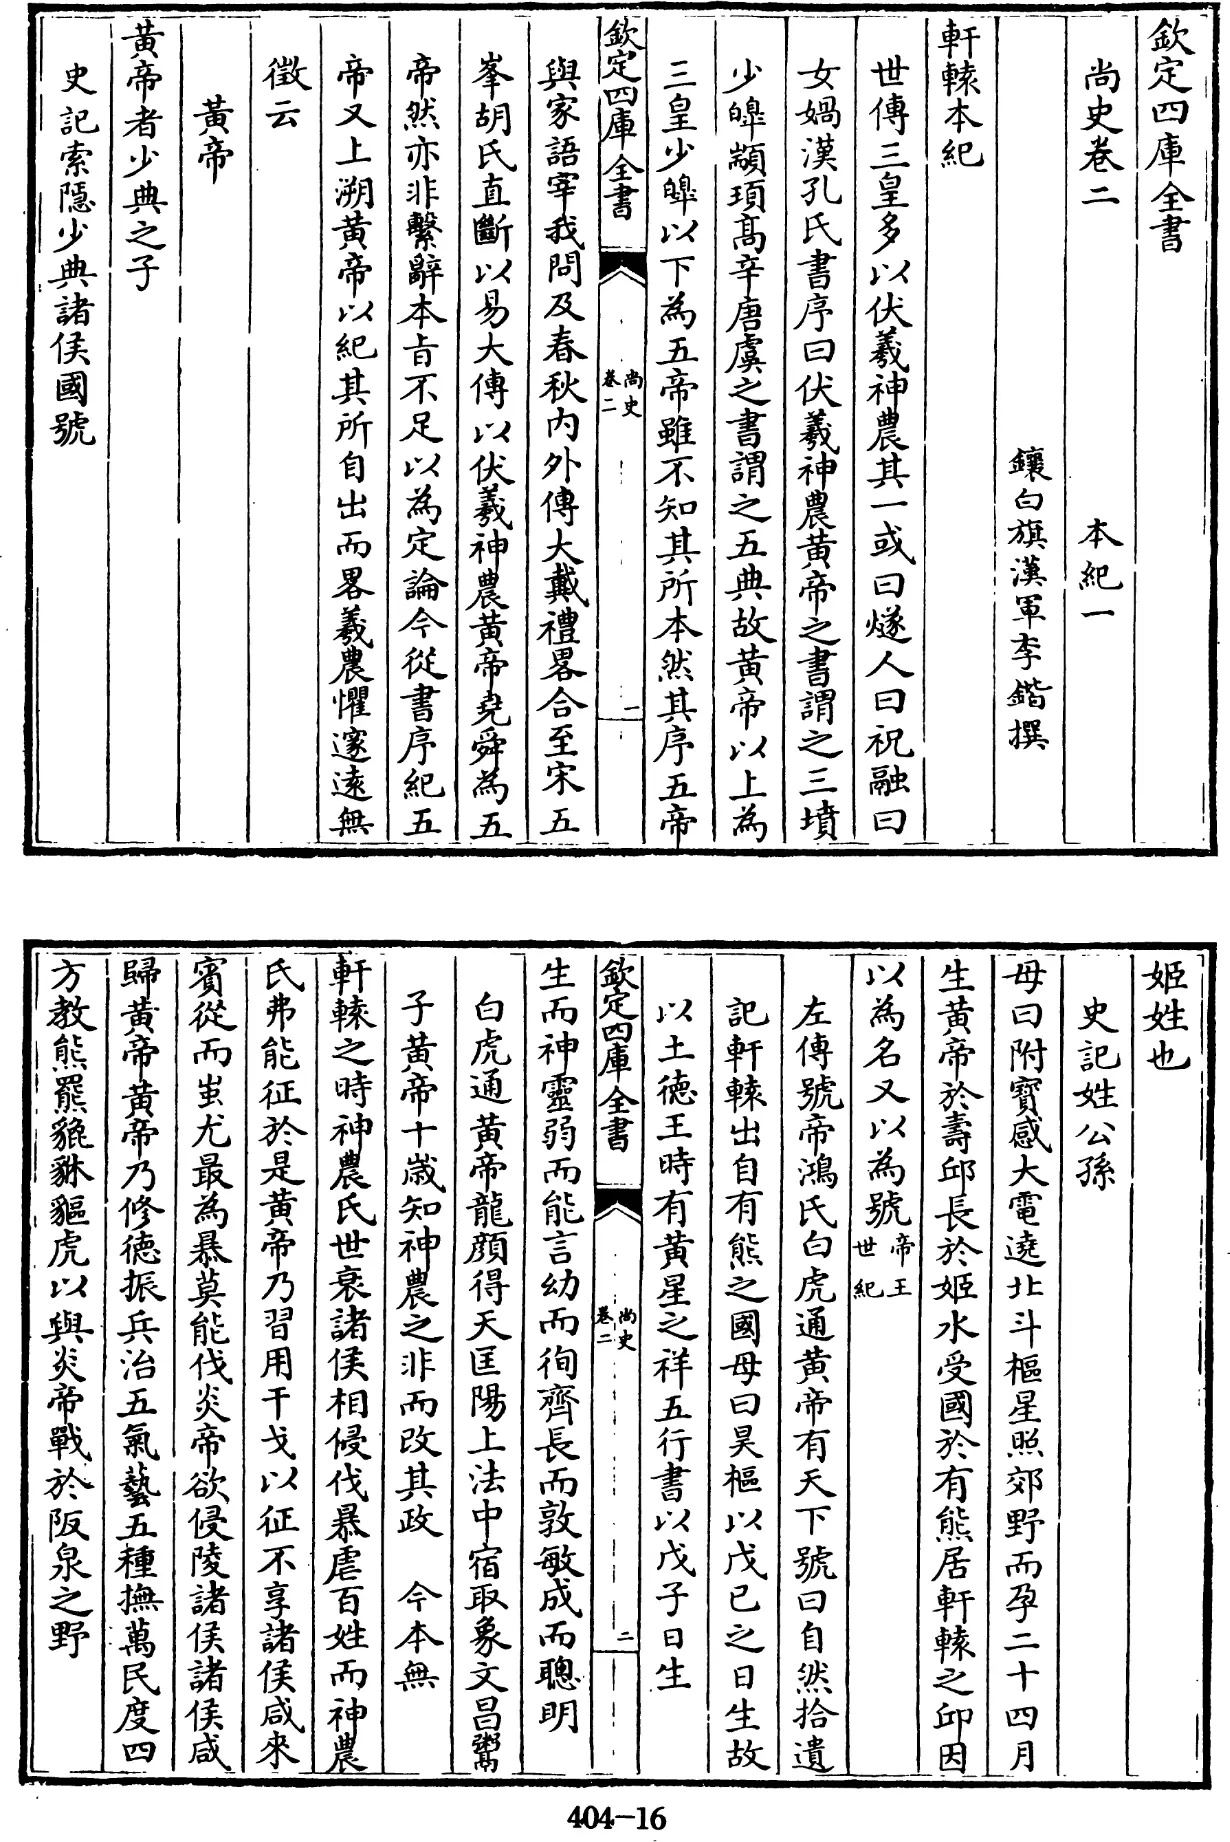 欽定四庫全書
尚史卷二　本紀一
鑲白旗漢軍李鍇撰
軒轅本紀
世傳三皇多以伏羲神農其一或曰燧人曰祝融曰
女媧漢孔氏書序曰伏羲神農黄帝之書謂之三墳
少皥顓頊髙辛唐虞之書謂之五典故黄帝以上為
三皇少皥以下為五帝雖不知其所本然其序五帝
欽定四庫全書
尚史
卷二
一
與家語宰我問及春秋内外傳大戴禮畧合至宋五
峯胡氏直斷以易大傳以伏羲神農黄帝堯舜為五
帝然亦非繫辭本㫖不足以為定論今從書序紀五
帝又上溯黄帝以紀其所自出而畧羲農懼邃逺無
徵云
黄帝
黄帝者少典之子
史記索隱少典諸侯國號
姬姓也
史記姓公孫
母曰附寳感大電遶北斗樞星照郊野而孕二十四月
生黄帝於壽邱長於姬水受國於有熊居軒轅之邱因
以為名又以為號帝王世紀
左傳號帝鴻氏白虎通黄帝有天下號曰自然拾遺
記軒轅出自有熊之國母曰昊樞以戊己之日生故
以土徳王時有黄星之祥五行書以戊子日生
欽定四庫全書
尚史
卷二
二
生而神靈弱而能言幼而徇齊長而敦敏成而聰明
白虎通黄帝龍顔得天匡陽上法中宿取象文昌鬻
子黄帝十歳知神農之非而改其政　今本無
軒轅之時神農氏世衰諸侯相侵伐暴虐百姓而神農
氏弗能征於是黄帝乃習用干戈以征不享諸侯咸來
賓從而蚩尤最為暴莫能伐炎帝欲侵陵諸侯諸侯咸
歸黄帝黄帝乃修徳振兵治五氣藝五種撫萬民度四
方教熊羆貔貅貙虎以與炎帝戰於阪泉之野
404-16